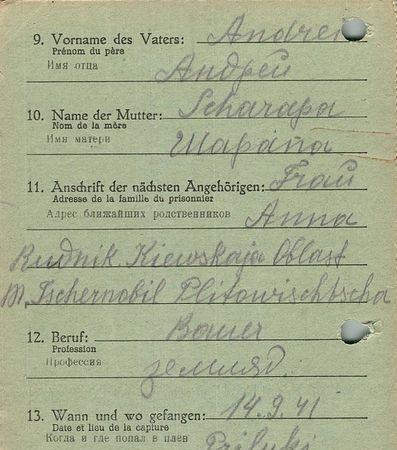 9. Vorname des Vaters: Andrei
Prénom du père
Имя отца
Андрей
10. Name der Mutter: Scharapa
Nom de la mère
Имя матери
Шарапа
11. Anschrift der nächsten Angehörigen: Frau
Adresse de la famille du prisonnier
Адрес ближайших родственников Anna
Rudnik Kiewskaja Oblast
Tschernobil Plitowischtscha
12. Beruf: Bauer
Profession
Профессия
земляд.
13. Wann und wo gefangen: 14.9.41
Date et lieu de la capture
Когда и где попал в плен
Priluki